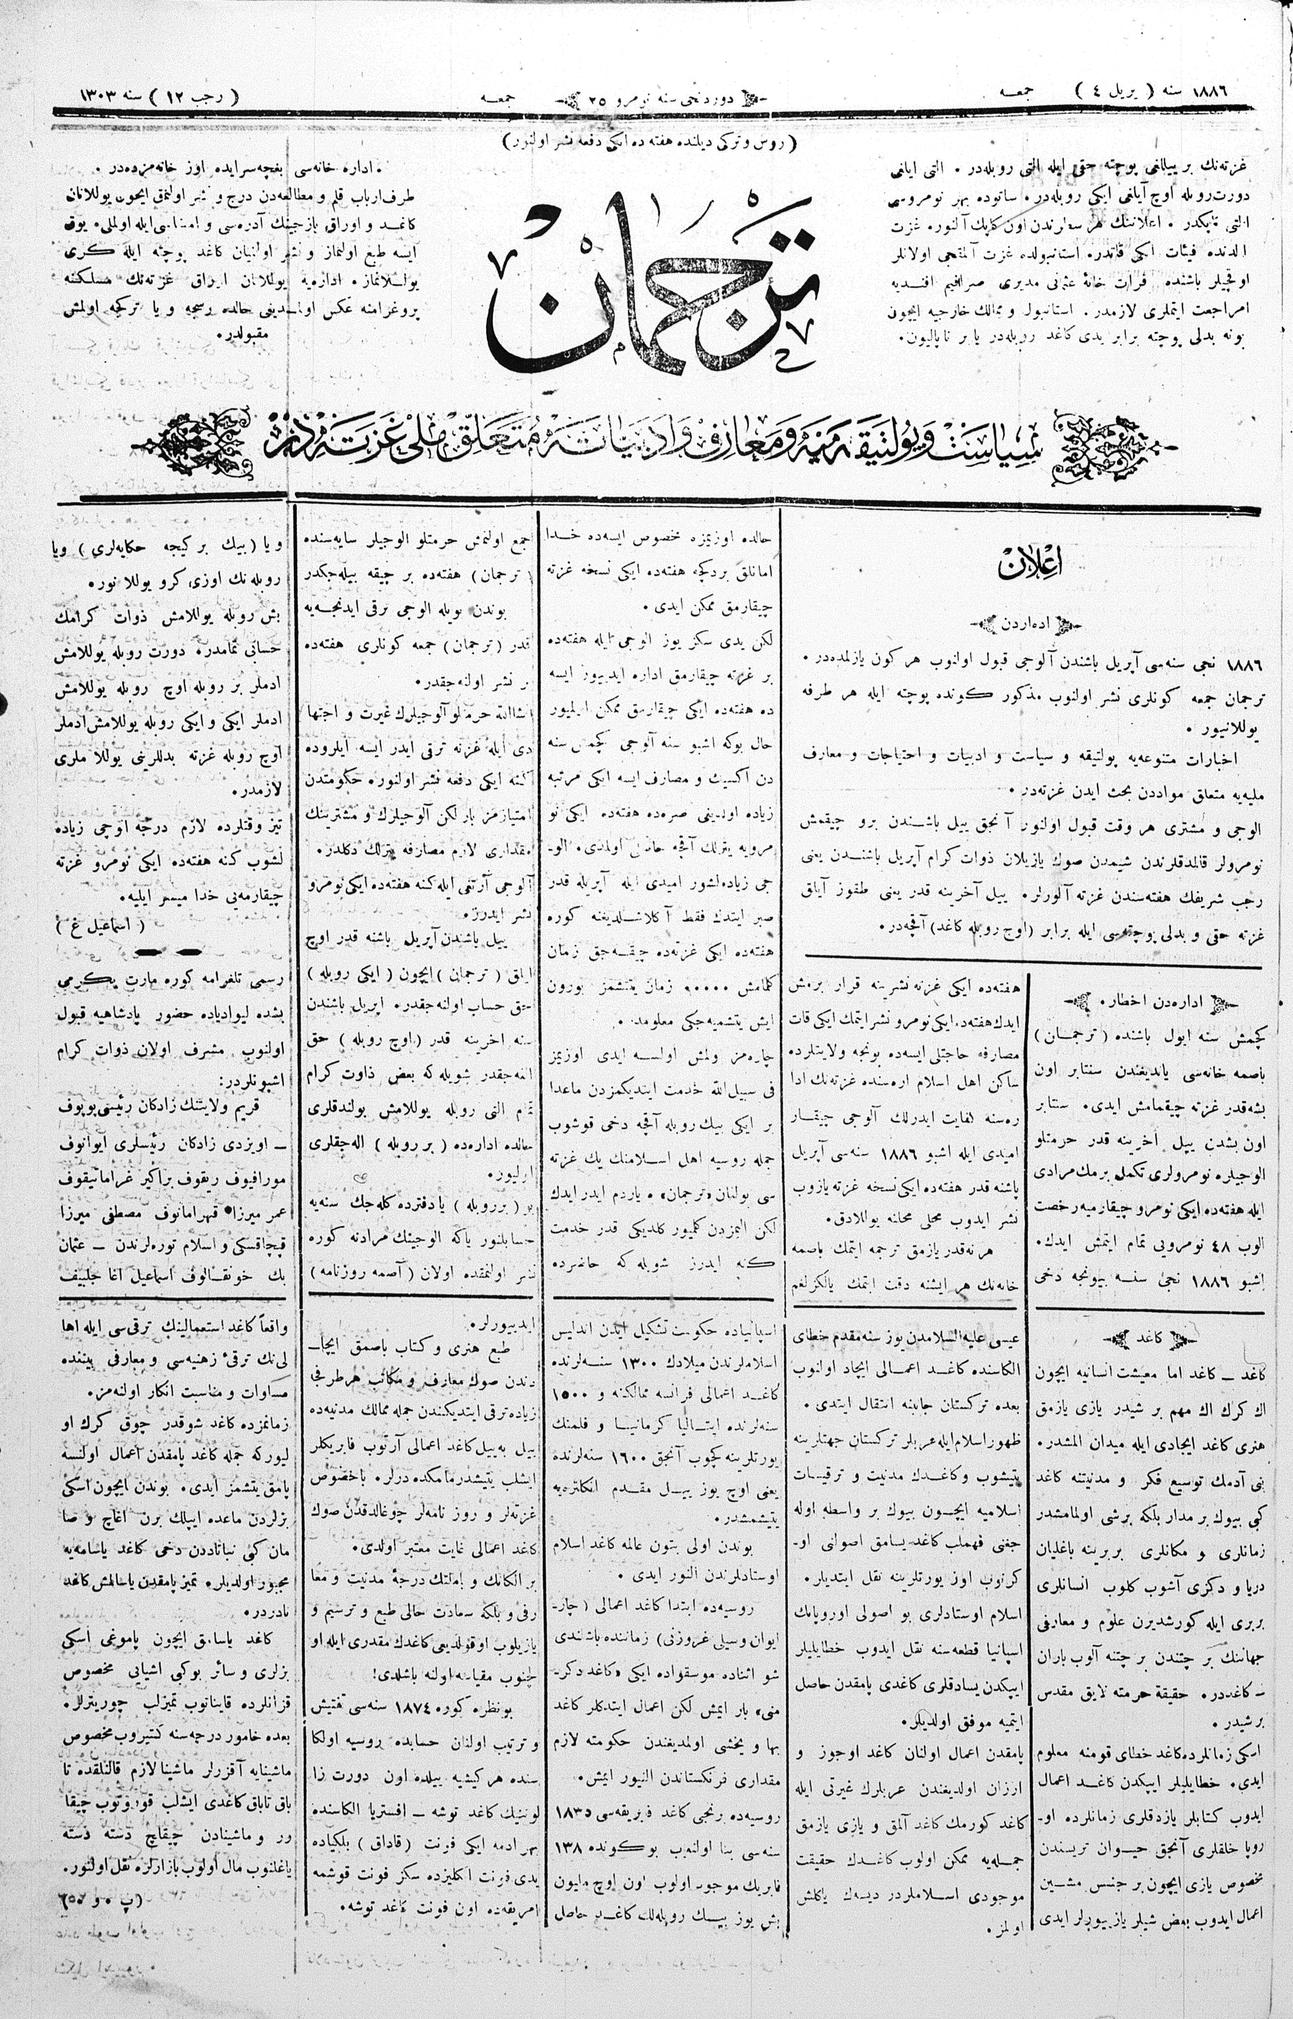 ١٨٨٦ سنه ( يريل ٤ ) جمعه
دوردنجى سنه نومرو ٢٥
جمعه ( رجب ١٢ ) سنه ١٣٠٣
( روس و تركى ديلنده هفته ده ايكى دفعه نشر اولنور )
غزته‌نك بر ييللغى پوچته حقى ايله التى روبله‌در . التى ايلغى
دورت روبله اوچ آيلغى ايكى روبله‌در . ساتوده بهر نومروسى
الدنده فيئات ايكى قاتدر . استانبولده غزت آلمقجى اولانلر
اوقجيلر باشنده قرائت خانهٔ عثمانى مديرى صرافيم افنديه
امراجعت ايتملرى لازمدر . استانبول و ممالك خارجيه ايچون
بونه بدلى پوچته برابر يدى كاغد روبله‌در يا بر ناپاليون .
ترجمان
. اداره خانه‌سى بغچه‌سرايده اوز خانه‌مزده‌در .
طرف ارباب قلم و مطالعه‌دن درج و نشر اولنمق ايچون يوللانان
كاغد و اوراق يازجينك آدره‌سى و امضاسى ايله اولملى . يوق
ايسه طبع اولنماز و نشر اولنيان كاغد پوچته ايله كرى
يوللانماز . اداره‌يه يوللانان اوراق غزته‌نك مسلكنه
پروغرامنه عكس اولمدينى حالده رسجه و يا تركچه اولمش
مقبولدر .
سياست و پولتيقه مَنيه و معارف و ادبياته متعلق ملى غزته‌در
اعلان
اده‌اردن
١٨٨٦ نجى سنه‌سى آپريل باشندن آلوجى قبول اولنوب هر كون يازلمده‌در .
ترجمان جمعه كونلرى نشر اولنوب مذكور كونده پوچته ايله هر طرفه
يوللانيور .
اخبارات متنوعه‌يه پولتيقه و سياست و ادبيات و احتياجات و معارف
مليه‌يه متعلق مواددن بحث ايدن غزته‌در .
الوجى و مشترى هر وقت قبول اولنور آنجق ييل باشندن برو چيقمش
نومرولر قالمدقلرندن شيمدن صوك يازيلان ذوات كرام آپريل باشندن يعنى
رجب شريفك هفته‌سندن غزته آلورلر . ييل آخرينه قدر يعنى طقوز آيلق
غزته حقى و بدلى پوچته‌سى ايله برابر ( اوچ روبله كاغد ) آقچه‌در .
اداره‌دن اخطار .
كچمش سنه ايول باشنده ( ترجمان )
باصمه خانه‌سى يانديغندن سنتابر اون
بشه‌قدر غزته چيقمامش ايدى . سنتابر
اون بشدن ييل آخرينه قدر حرمتلو
الوجيلره نومرولرى تكمل برمك مرادى
ايله هفته‌ده ايكى نومرو چيقارميه رخصت
الوب ٤٨ نومرويى تمام ايتمش ايدك .
اشبو ١٨٨٦ نجى سنه بيونجه دخى
هفته‌ده ايكى غزته نشرينه قرار برمش
ايدك هفته‌ده ايكى نومرو نشر ايتمك ايكى قات
مصارفه حاجتلى ايسه‌ده بونجه ولايتلرده
ساكن اهل اسلام اره‌سنده غزته‌نك ادا
ره‌سنه كفايت ايدرلك آلوجى چيقار
اميدى ايله اشبو ١٨٨٦ سنه‌سى آپريل
باشنه قدر هفته‌ده ايكى نسخه غزته يازوب
نشر ايدوب محلى محلنه يوللادق .
هر نه‌قدر يازمق ترجمه ايتمك باصمه
خانه‌نك هر ايشنه دقت ايتمك يالكزلغم
حالده اوزيمزه مخصوص ايسه‌ده خدا
امانلق بردكچه هفته‌ده ايكى نسخه غزته
چيقارمق ممكن ايدى .
لكن يدى سكز يوز الوجى ايله هفته‌ده
بر غزته چيقارمق اداره ايدبيور ايسه
ده هفته‌ده ايكى چيقارمق ممكن ايلميور
حال بوكه اشبو سنه آلوجى كچمش سنه
دن اكسيك و مصارف ايسه ايكى مرتبه
زياده اولدينى صره‌ده هفته‌ده ايكى نو
مرويه يترلك آقچه حاصل اولمدى . الو‌
جى زياده‌لشور اميدى ايله آپريله قدر
صبر ايتدك فقط آكلاشلديغنه كوره
هفته‌ده ايكى غزته‌ده چيقه‌جق زمان
كلمامش ..... زمان يتشمز بورون
ايش يتشميه‌جكى معلومد .
چاره‌مز ولمش اولسه ايدى اوزيمز
فى سبيل الله خدمت ايتديكمزدن ماعدا
بر ايكى بيك روبله آقچه دخى قوشوب
جمله روسيه اهل اسلامنك يك غزته
سى بولنان «ترجمان»ه ياردم ايدر ايدك
لكن اليمزدن كلميور كلديكى قدر خدمت
كنه ايدرز شويله كه حاضرده
جمع اولنمش حرمتلو الوجيلر سايه‌سنده
( ترجمان ) هفته‌ده بر چيقه بيله‌جكدر
بوندن بويله الوجى ترقى ايدنجه‌يه
قدر ( ترجمان ) جمعه كونلرى هفته‌ده
بر نشر اولنه‌جقدر .
انشاالله حرمتلو آلوجيلرك غيرت و اجتها
دى ايله غزته ترقى ايدر ايسه ايلروده
كنه ايكى دفعه نشر اولنور . حكومتدن
امتيازمز بار لكن آلوجيلرك و مشترينك
مقدارى لازم مصارفه يترلك دكلدر .
آلوجى آرتنى ايله كنه هفته‌ده ايكى نومرو
نشر ايدرز .
ييل باشندن آپريل باشنه قدر اوچ
ايلق ( ترجمان ) ايچون ( ايكى روبله )
حق حساب اولنه‌جقدر . اپريل باشندن
سنه اخرينه قدر ( اوچ روبله ) حق
النه‌جقدر شويله كه بعض ذاوت كرام
تمام التى روبله يوللامش بولندقلرى
حالده اداره‌ده ( بر روبله ) اله‌جقلرى
اوليور .
بو ( بر روبله ) يا دفترده كله‌جك سنه‌يه
حسابلنور ياكه الوجينك مرادنه كوره
نشر اولنمقده اولان ( آصمه روزنامه )
و يا ( بيك بر كيجه حكايه‌لرى ) و يا
روبله‌نك اوزى كرو يوللا نور .
بش روبله يوللامش ذوات كرامك
حسابى تمامدر . دورت روبله يوللامش
ادملر بر روبله اوچ روبله يوللامش
ادملر ايكى و ايكى روبله يوللامش ادملر
اوچ روبله غزته بدللرينى يوللا ملرى
لازمدر .
تيز وقتلرده لازم درجه الوجى زياده
لشوب كنه هفته‌ده ايكى نومرو غزته
چيقارمه‌يى خدا ميسر ايليه .
( اسماعيل غ )
رسمى تلغرامه كوره مارت يكرمى
بشده ليواديا‌ده حضور پادشاهيه قبول
اولنوب مشرف اولان ذوات كرام
اشبونلردر :
قريم ولايتنك زادكان رئيسى پوپوف
ــ اويزدى زادكان رئيسلرى ايوانوف
مورافيوف ريقوف براكير غراماتيقوف
عمر ميرزا قهرمانوف مصطفى ميرزا
قپچاقسكى و اسلام توره‌لرندن ــ عثمان
بك خونقالوف اسماعيل آغا چلبيف
كاغد
كاغد ــ كاغد اما معيشت انسانيه ايچون
اك كرك اك مهم بر شيدر يازى يازمق
هنرى كاغد ايجادى ايله ميدان المشدر .
بنى آدمك توسيع فكر و مدنيتنه كاغد
كبى بيوك بر مدار بلكه برشى اولمامشدر
زمانلرى و مكانلرى بربرينه باغليان
دريا و دكزى آشوب كلوب انسانلرى
بربرى ايله كورشديرن علوم و معارفى
جهاننك بر چتندن بر چتنه آلوب باران
ــ كاغددر . حقيقة حرمته لايق مقدس
بر شيدر .
اسكى زمانلرده كاغد خطاى قومنه معلوم
ايدى . خطايليلر ايپكدن كاغد اعمال
ايدوب كتابلر يازدقلرى زمانلرده او‌
روپا خلقلرى آنجق حيوان تريسندن
مخصوص يازى ايچون بر جنس مشين
اعمال ايدوب بعض شيلر يازبيورلر ايدى
عيسى عليه السلامدن يوز سنه مقدم خطاى
الكاسنده كاغد اعمالى ايجاد اولنوب
بعده تركستان جانبنه انتقال ايتدى .
ظهور اسلام ايله عربلر تركستان جهتلرينه
يتيشوب و كاغدك مدنيت و ترقيات
اسلاميه ايچون بيوك بر واسطه اوله
جغنى فهملب كاغد يسامق اصولنى او‌
كرنوب اوز يورتلرينه نقل ايتديلر .
اسلام اوستادلرى بو اصولى اوروپانك
اسپانيا قطعه‌سنه نقل ايدوب خطايليلر
ايپكدن يسادقلرى كاغدى پامقدن حاصل
ايتميه موفق اولديلر .
پامقدن اعمال اولنان كاغد اوجوز و
ارزان اولديغندن عربلرك غيرتى ايله
كاغد كورمك كاغد آلمق و يازى يازمق
جمله‌يه ممكن اولوب كاغدك حقيقت
موجودى اسلاملردر ديسه‌ك ياكلش
اولمز .
اسپانياده حكومت تشكيل ايدن اندليس
اسلاملرندن ميلادك ١٣٠٠ سنه‌لرنده
كاغد اعمالى فرانسه ممالكنه و ١٥٠٠
سنه‌لرنده ايتاليا كرمانيا و فلمنك
يورتلرينه كچوب آنجق ١٦٠٠ سنه‌لرنده
يعنى اوچ يوز ييل مقدم انكلتره‌يه
يتيشمشدر .
بوندن اولى بتون عالمه كاغد اسلام
اوستادلرندن النور ايدى .
روسيه‌ده ابتدا كاغد اعمالى ( چار‌
ايوان وسيلى غروزنى ) زماننده باشلندى
شو اثناده موسقواده ايكى «كاغد دكر‌
منى» بار ايمش لكن اعمال ايتدكلر كاغد
بها و يخشى اولمديغندن حكومته لازم
مقدارى فرنكستاندن النيور ايمش .
روسيه‌ده برنجى كاغد فبريقه‌سى ١٨٣٥
سنه‌سى بنا اولنوب بو كونده ١٣٨
فابريك موجود اولوب اون اوچ مليون
بش يوز بيك روبله‌لك كاغد حاصل
ايدبيورلر .
طبع هنرى و كتاب باصمق ايجا‌
دندن صوك معارف و مكاتب هر طرفجى
زياده ترقى ايتديكندن جمله ممالك مدنيه‌ده
ييل به ييل كاغد اعمالى آرتوب فابريكلر
ايشلب يتيشدرمامكده درلر . باخصوص
غزته‌لر و روز نامه‌لر چوغالدقدن صوك
كاغد اعمالى غايت معتبر اولدى .
بر الكانك و ملتك درجهٔ مدنيت و معا
رفى و بلكه سعادت حالى طبع و ترسيم و
يازيلوب اوقولديغى كاغدك مقدرى ايله او
لچنوب مقياسه اولنه باشلدى !
بو نظره كوره ١٨٧٤ سنه‌سى تفتيش
و ترتيب اولنان حسابده روسيه اولكا
سنده هر كيشيه ييلده اون دورت زا
لوتنيك كاغد توشه ــ افستريا الكاسنده
بهر ادمه ايكى فرنت ( قاداق ) بلكياده
يدى فرنت انكليزده سكز فونت قوشمه
امريقه‌ده اون فونت كاغد توشه .
واقعاً كاغد استعمالينك ترقى‌سى ايله اها
لى‌نك ترقئ زهنيه‌سى و معارفى بيننده
مساوات و مناسبت انكار اولنه‌مز .
زمانمزده كاغد شوقدر چوق كرك او
ليوركه جمله كاغد پامقدن اعمال اولنسه
پامق يتشمز ايدى . بوندن ايچون اسكى
بزلردن ماعده ايپلك برن اغاچ و صا
مان كبى نباتاتدن دخى كاغد ياسامه‌يه
مجبور اولديلر . تميز پامقدن ياسالمش كاغد
نادردر .
كاغد ياسامق ايچون پاموغى اسكى
بزلرى و سائر بوكبى اشيايى مخصوص
قزانلرده قاينانوب تميزلب چوريترلر .
بعده خامور درجه‌سنه كتيروب مخصوص
ماشينايه آقزرلر ماشينا لازم قالنلقده تا
باق تاباق كاغدى ايشلب قوروتوب چيقا
رور و ماشينادن چيقاچ دسته دسته
باغلنوب مال اولوب بازارلره نقل اولنور .